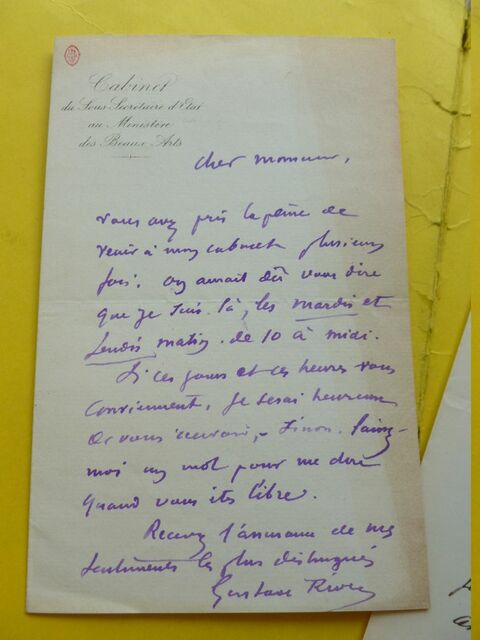 Cabinet
du Sous-Secrétaire d'Etat
au Ministère
des Beaux Arts
Cher monsieur,
vous avez pris la peine de
venir à mon cabinet plusieurs
fois. on aurait dû vous dire
que je suis là, les mardis et
Jeudis matin de 10 à midi.
Si ces jours et ces heures vous
conviennent, je serai heureux
de vous recevoir, - Sinon.
moi un mot pour me dire
quand vous êtes libre.
Recevez l'assurance de mes
sentiments les plus distingués
Gustave